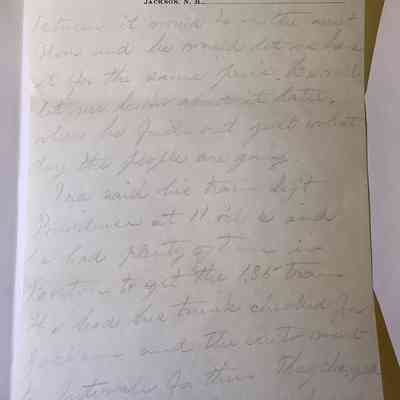 JACKSON, N. H.,
between it would be in the next
room and he would let us have
it for the same price. He would
let me know about it later,
when he finds out just what
day the people are going.
Ira said his train left
Providence at 11 o'clk and
he had plenty of time in
Boston to get the 1.35 train
He had his trunk checked for
Jackson and the cost was
for this They charged